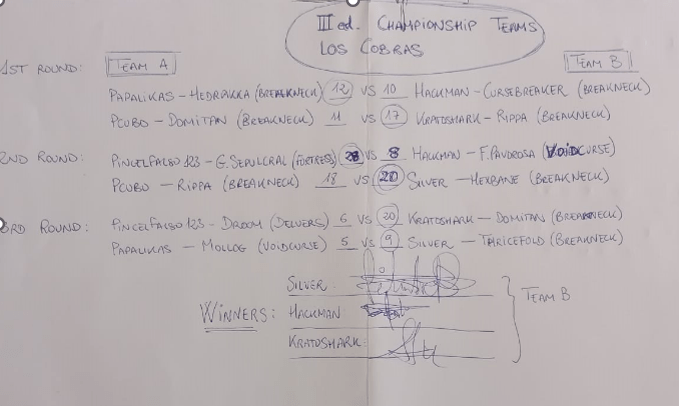 III ed. CHAMPIONSHIP TEAMS
LOS COBRAS
1ST ROUND: TEAM A TEAM B
PAPALIKAS - HEDRAKKA (BREAKNECK) 12 VS 10 HACKMAN - CURSEBREAKER (BREAKNECK)
PCUBO - DOMITAN (BREAKNECK) 11 VS 17 KRATOSHARK - RIPPA (BREAKNECK)
2ND ROUND: PINCELFALSO123 - G. SEPULCRAL (FORTRESS) VS 8 HACKMAN - F. PAVOROSA (VOIDCURSE)
PCUBO - RIPPA (BREAKNECK) 18 VS 20 SILVER - HEXBANE (BREAKNECK)
3RD ROUND: PINCELFALSO123 - DROOM (DELVERS) 6 VS 20 KRATOSHARK - DOMITAN (BREAKNECK)
PAPALIKAS - MOLLOG (VOIDCURSE) 5 VS 9 SILVER - THRICEFOLD (BREAKNECK)
SILVER:
WINNERS: HACKMAN TEAM B
KRATOSHARK: